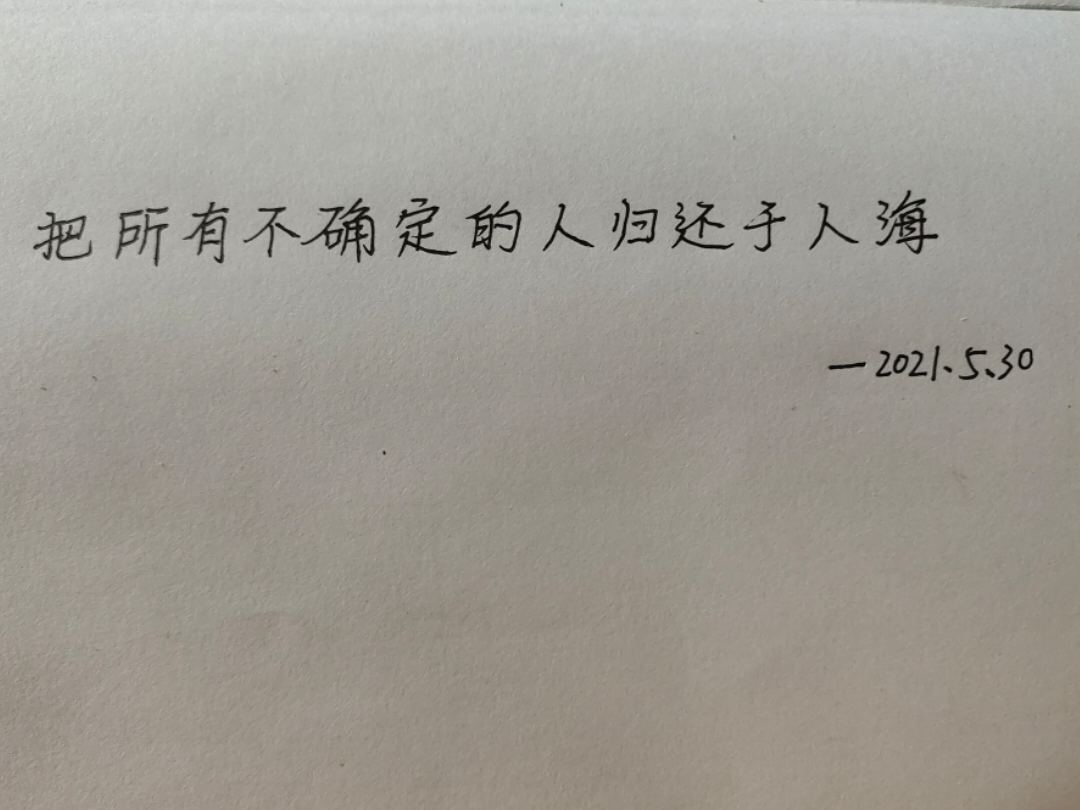 把所有不确定的人归还于人海
—2021.5.30